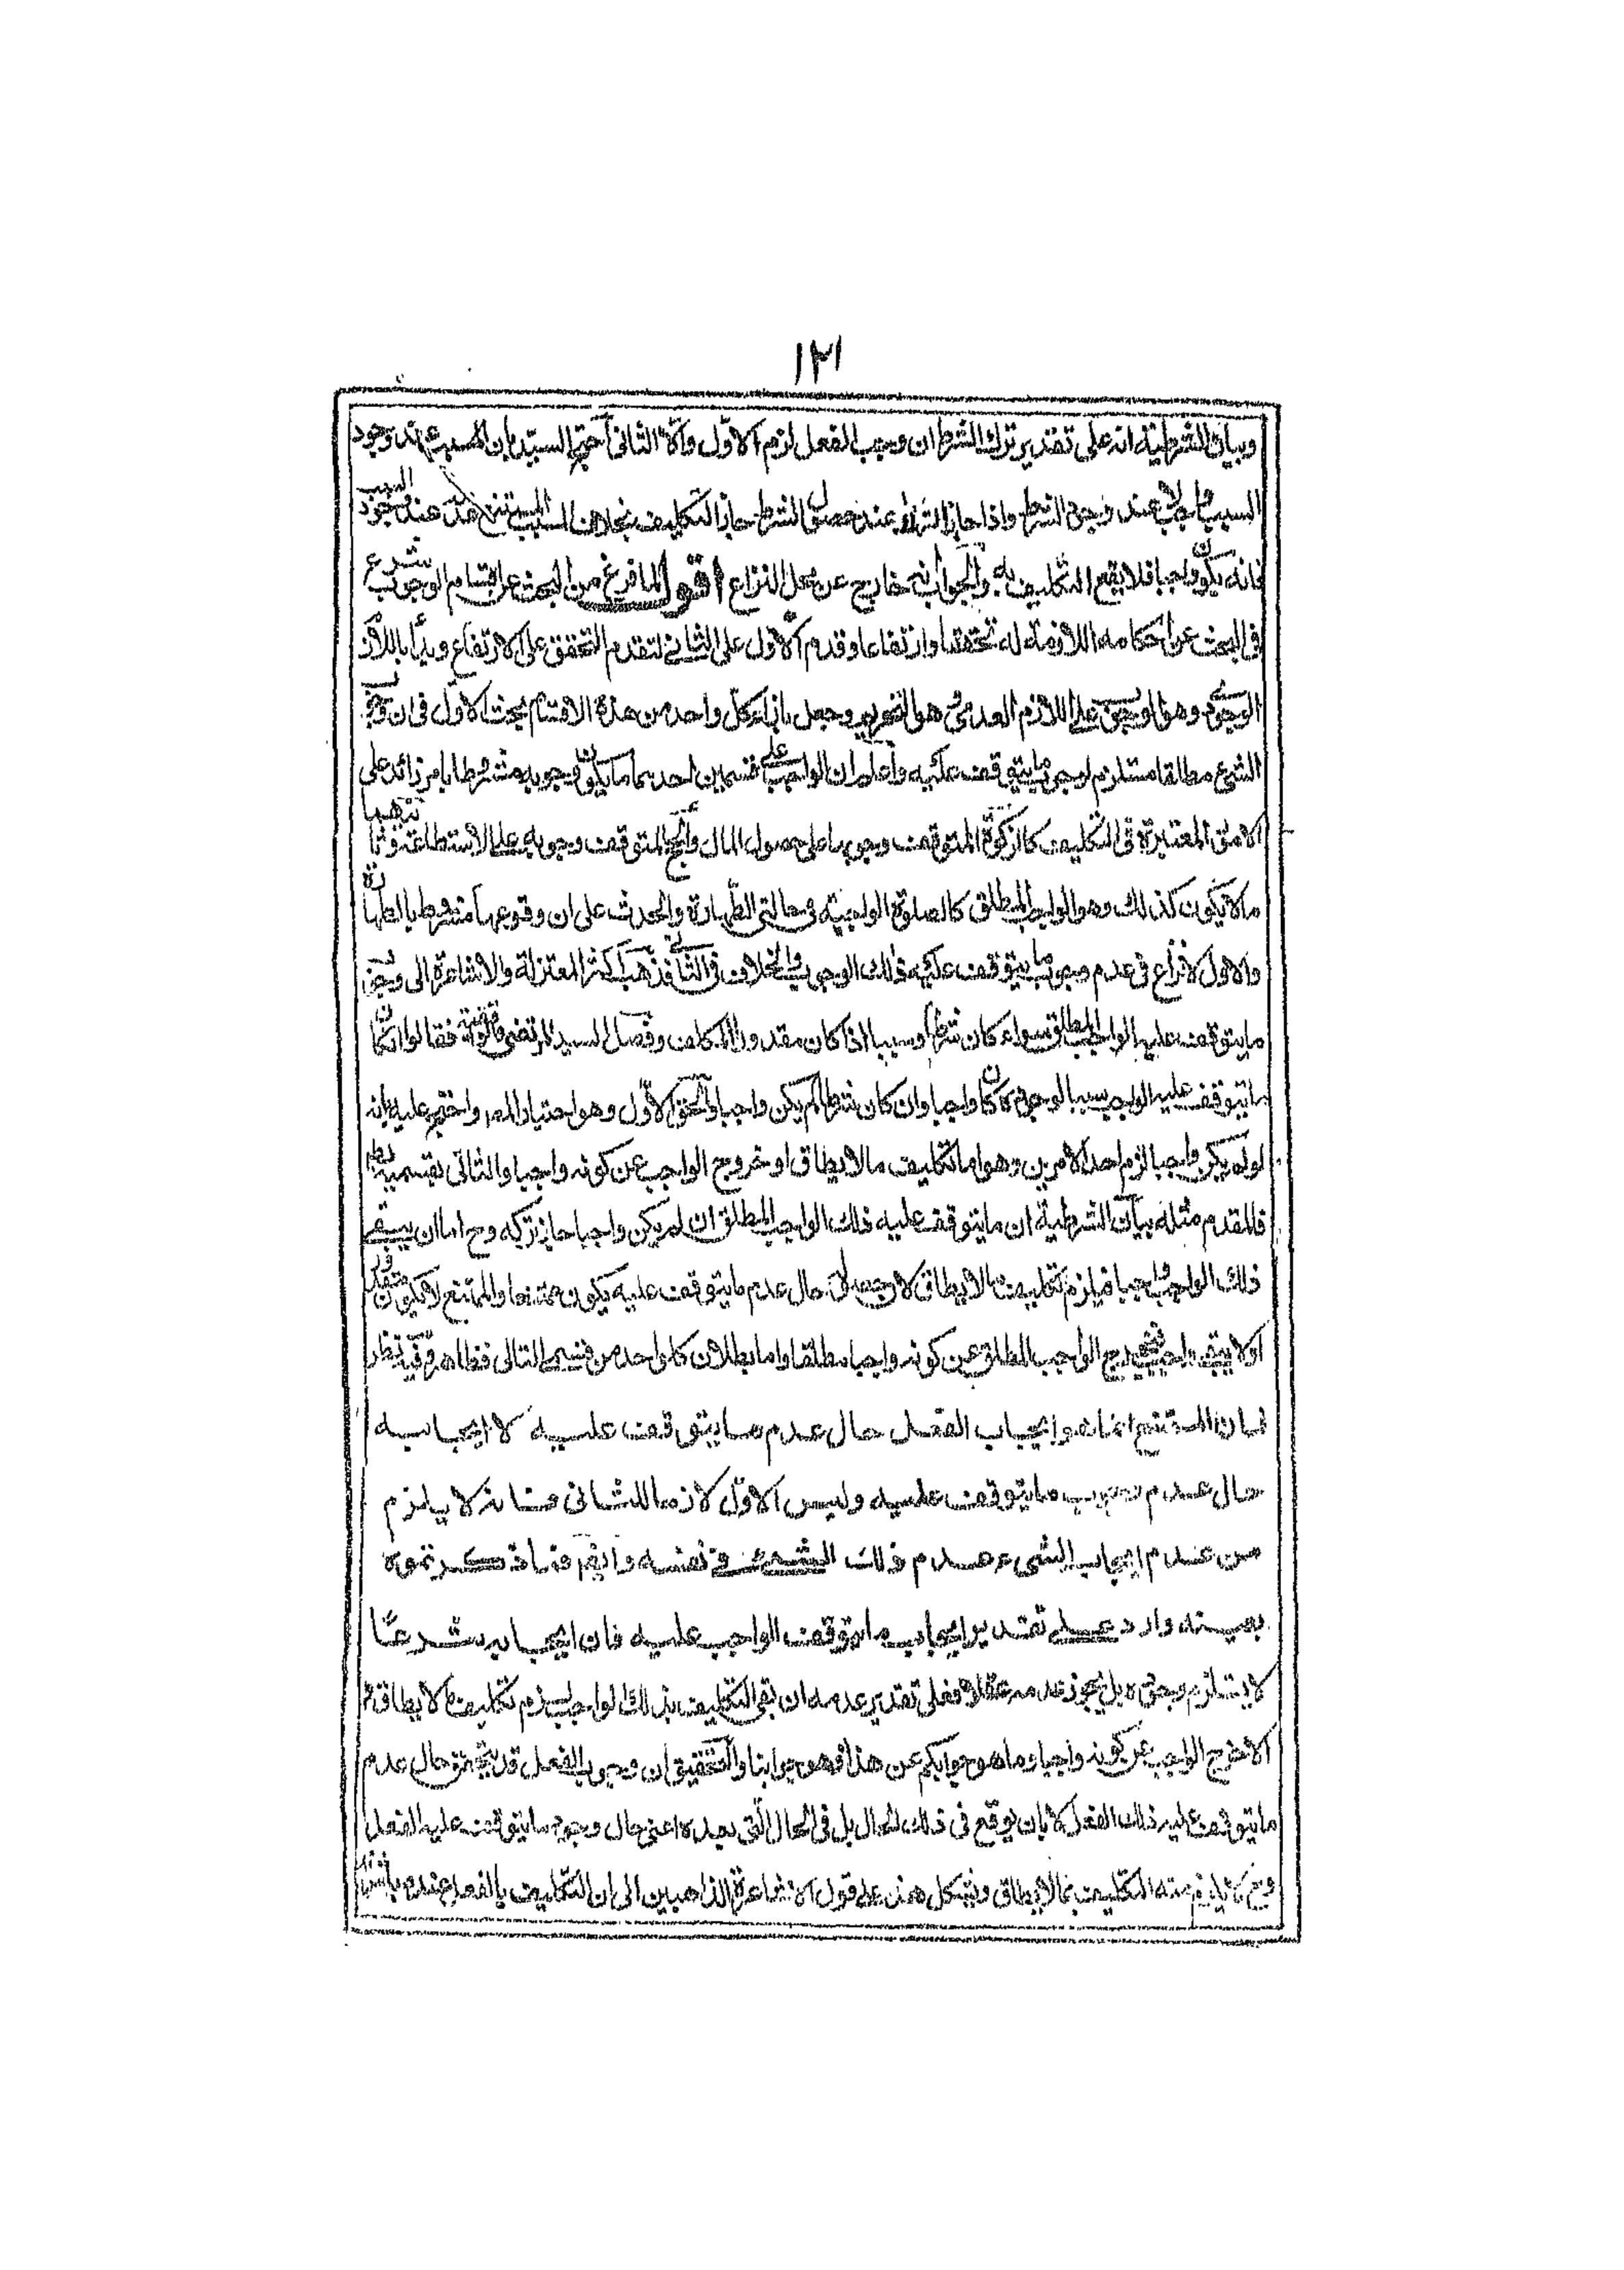 ١٢١
وبيان الشرطية انه على تقدير ترك الشرط ان وجب الفعل لزم الاول والا الثانى احتج السيد بان المسبب عند وجود
السبب واجب عند وجود الشرط واذا جاز الترك عند حصول الشرط جاز التكليف بخلاف المسبب عند وجود السبب
فانه يكون واجبا فلا يقع التكليف به والجواب انه خارج عن محل النزاع اقول لما فرغ من البحث عن اقسام الوجوب شرع
فى البحث عن احكامه اللازمة له تحققا وارتفاعا وقدم الاول على الثانى لتقدم التحقق على الارتفاع وبدأ باللازم
الوجودى وهو على اللازم العدمى هو التحريم وجعل بازاء كل واحد من هذه الاقسام بحث الاول فى ان وجوب
الشئ مطلقا مستلزم لوجوب ما يتوقف عليه واعلم ان الواجب على قسمين احدهما ما يكون وجوبه مشروطا بامر زائد على
الامور المعتبرة فى التكليف كالزكوة المتوقف وجوبها على حصول المال والحج المتوقف وجوبه على الاستطاعة وثانيهما
ما لا يكون كذلك وهو الواجب المطلق كالصلوة الواجبة فى حالتى الطهارة والحدث على ان وقوعها مشروط بالطهارة
والاول لا نزاع فى عدم وجوب ما يتوقف عليه ذلك الوجوب والخلاف فى الثانى فذهب اكثر المعتزلة والاشاعرة الى وجوب
ما يتوقف عليه الواجب المطلق سواء كان شرطا وسببا اذا كان مقدورا للمكلف وفصل السيد المرتضى فقالوا ان كان
ما يتوقف عليه الواجب سببا لوجوده كان واجبا وان كان شرطا لم يكن واجبا والحق الاول وهو اختيار المصر واحتج عليه بانه
لو لم يكن واجبا لزم احد الامرين وهو اما تكليف ما لا يطاق او خروج الواجب عن كونه واجبا والتالى بقسميه بط
فالمقدم مثله بيان الشرطية ان ما يتوقف عليه ذلك الواجب المطلق ان لم يكن واجبا جاز تركه وح اما ان يبقى
ذلك الواجب واجبا فيلزم تكليف ما لا يطاق حال عدم ما يتوقف عليه يكون ممتنعا والممتنع لا يكون مقدورا
او لا يبقى واجبا فيخرج الواجب المطلق عن كونه واجبا مطلقا واما بطلان كل واحد من قسمى التالى فظاهر وفيه نظر
فان الممتنع انما هو ايجاب الفعل حال عدم ما يتوقف عليه لا ايجابه
حال عدم وجوب ما يتوقف عليه وليس الاول لازما للثانى فانه لا يلزم
من عدم ايجاب الشىء عدم ذلك الشئ فى نفسه وايضا فما ذكرتموه
بعينه وارد على تقدير ايجاب ما يتوقف الواجب عليه فان ايجابه شرعا
لا يستلزم وجوده بل يجوز عدمه عقلا فعلى تقدير عدمه ان بقى التكليف بذلك الواجب لزم تكليف ما لا يطاق و
الا خرج الواجب عن كونه واجبا وما هو جوابكم عن هذا فهو جوابنا والتحقيق ان وجوب الفعل قد يتحقق حال عدم
ما يتوقف عليه ذلك الفعل لا بان يوقع فى ذلك الحال بل فى الحال التى بعده اعنى حال وجود ما يتوقف عليه الفعل
وح لا يلزم منه التكليف بما لا يطاق ويشكل هذا على قول الاشاعرة الذاهبين الى ان التكليف بالفعل عند